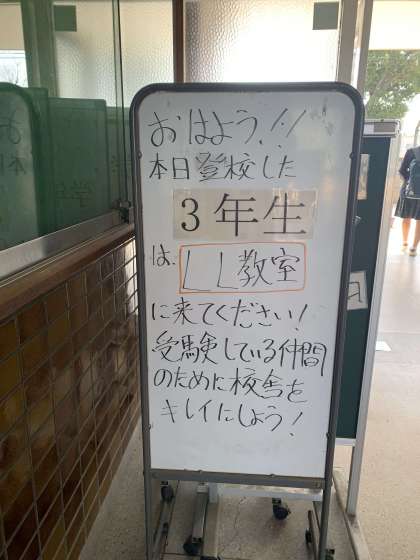 おはよう!!
本日登校した
3年生
は、LL教室
に来てください!
受験している仲間
のために校舎を
キレイにしよう!